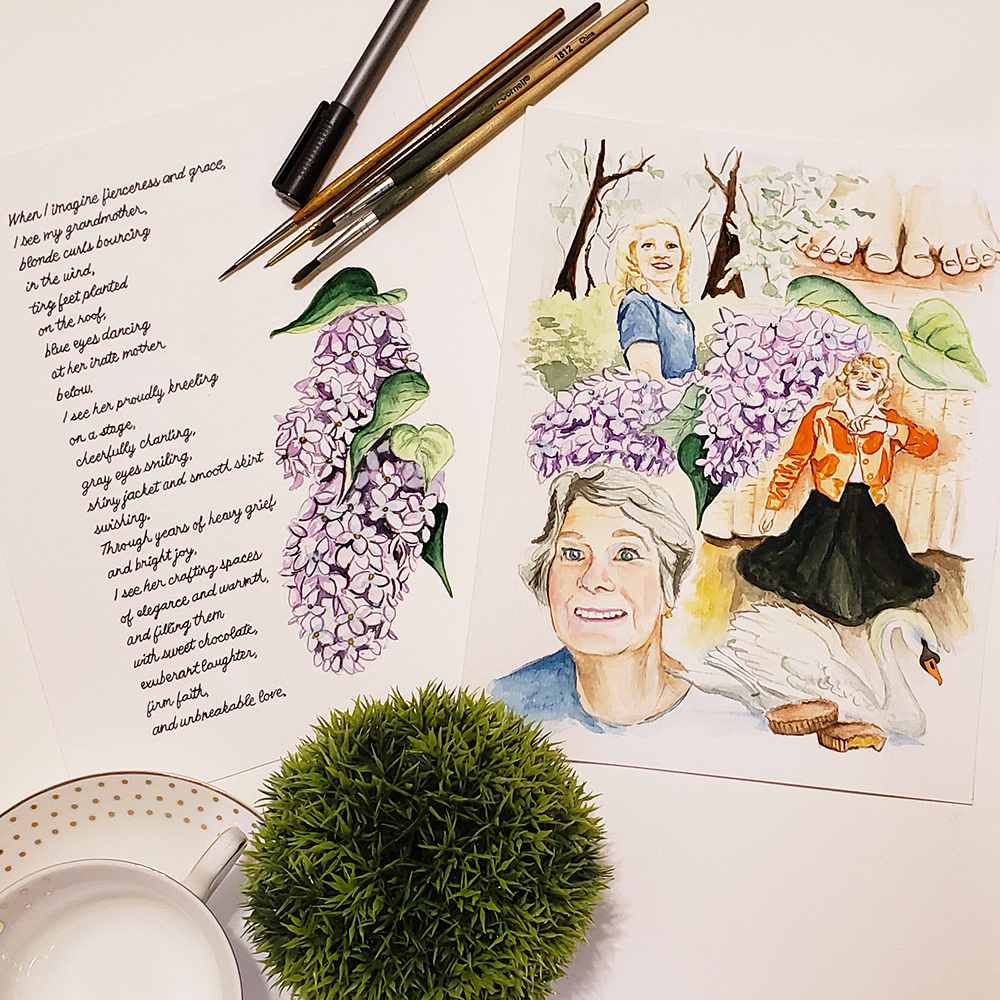 When I imagine fierceness and grace,
I see my grandmother,
blonde curls bouncing
in the wind,
tiny feet planted
on the roof,
blue eyes dancing
at her irate mother
below.
I see her proudly kneeling
on a stage,
cheerfully chanting,
gray eyes smiling,
shiny jacket and smooth skirt
swishing.
Through years of heavy grief
and bright joy,
I see her crafting spaces
of elegance and warmth,
and filling them
with sweet chocolate,
exuberant laughter,
firm faith,
and unbreakable love.
1812 China